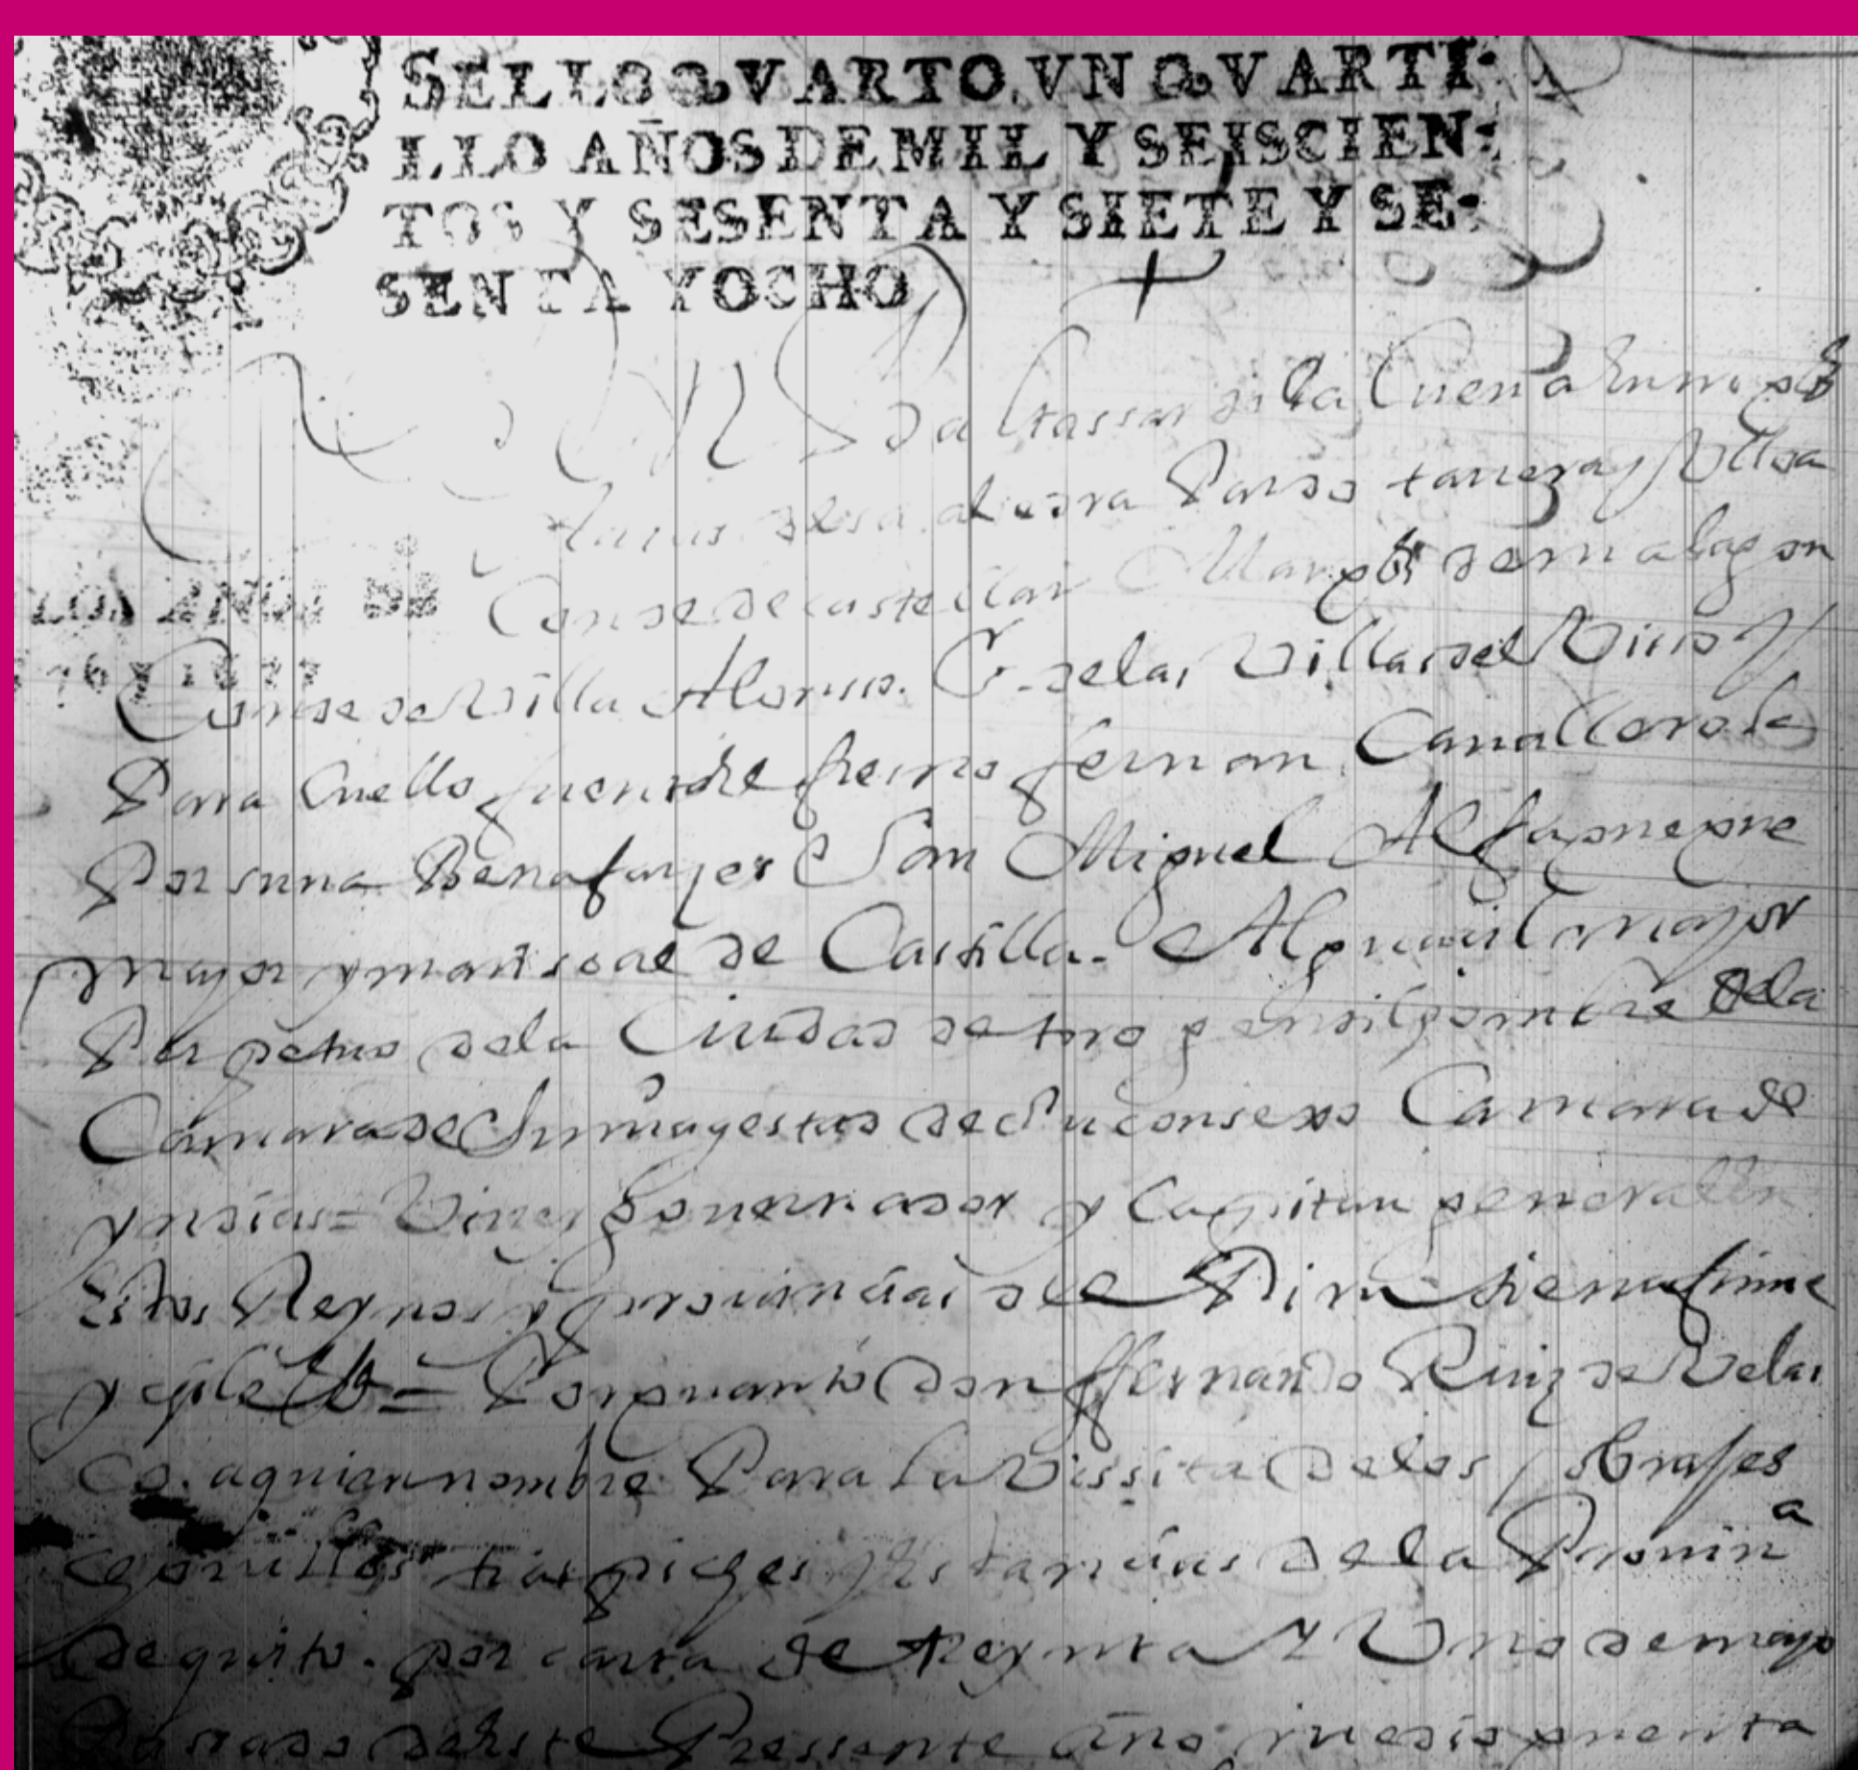 SELLO QVARTO, VN QVARTI-
LLO AÑOS DE MIL Y SEISCIEN-
TOS Y SESENTA Y SIETE Y SE-
SENTA Y OCHO
Dn Baltassar de la Cueva Enrriqz
de saavedra Pardo tavera y Ulloa
Conde de castellar Marqs de malagon
LOS AÑOS DE
Conde de Villa Alonso. Sr. de las Villas del Viso
Para Cuellos fuente el fresno fernan Cavallero
Porzuna Benafarzes San Miguel Alfaqueque
mayor y mariscal de Castilla. Alguacil mayor
Perpetuo de la Ciudad de toro gentilhombre de la
Camara de su magestad de su consexo Camara de
yndias = Virrey governador y Capitan general en
Estos Reynos y provincias del Piru tierra firme
y chile etta = Por quanto don ffernando Ruiz de Velas
co. a quien nombre Para la Vissita de los obrajes
chorrillos trapiches y estancias de la Provina
de quito. por carta de treynta Y Uno de mayo
Passado deste Pressente año me dio quenta